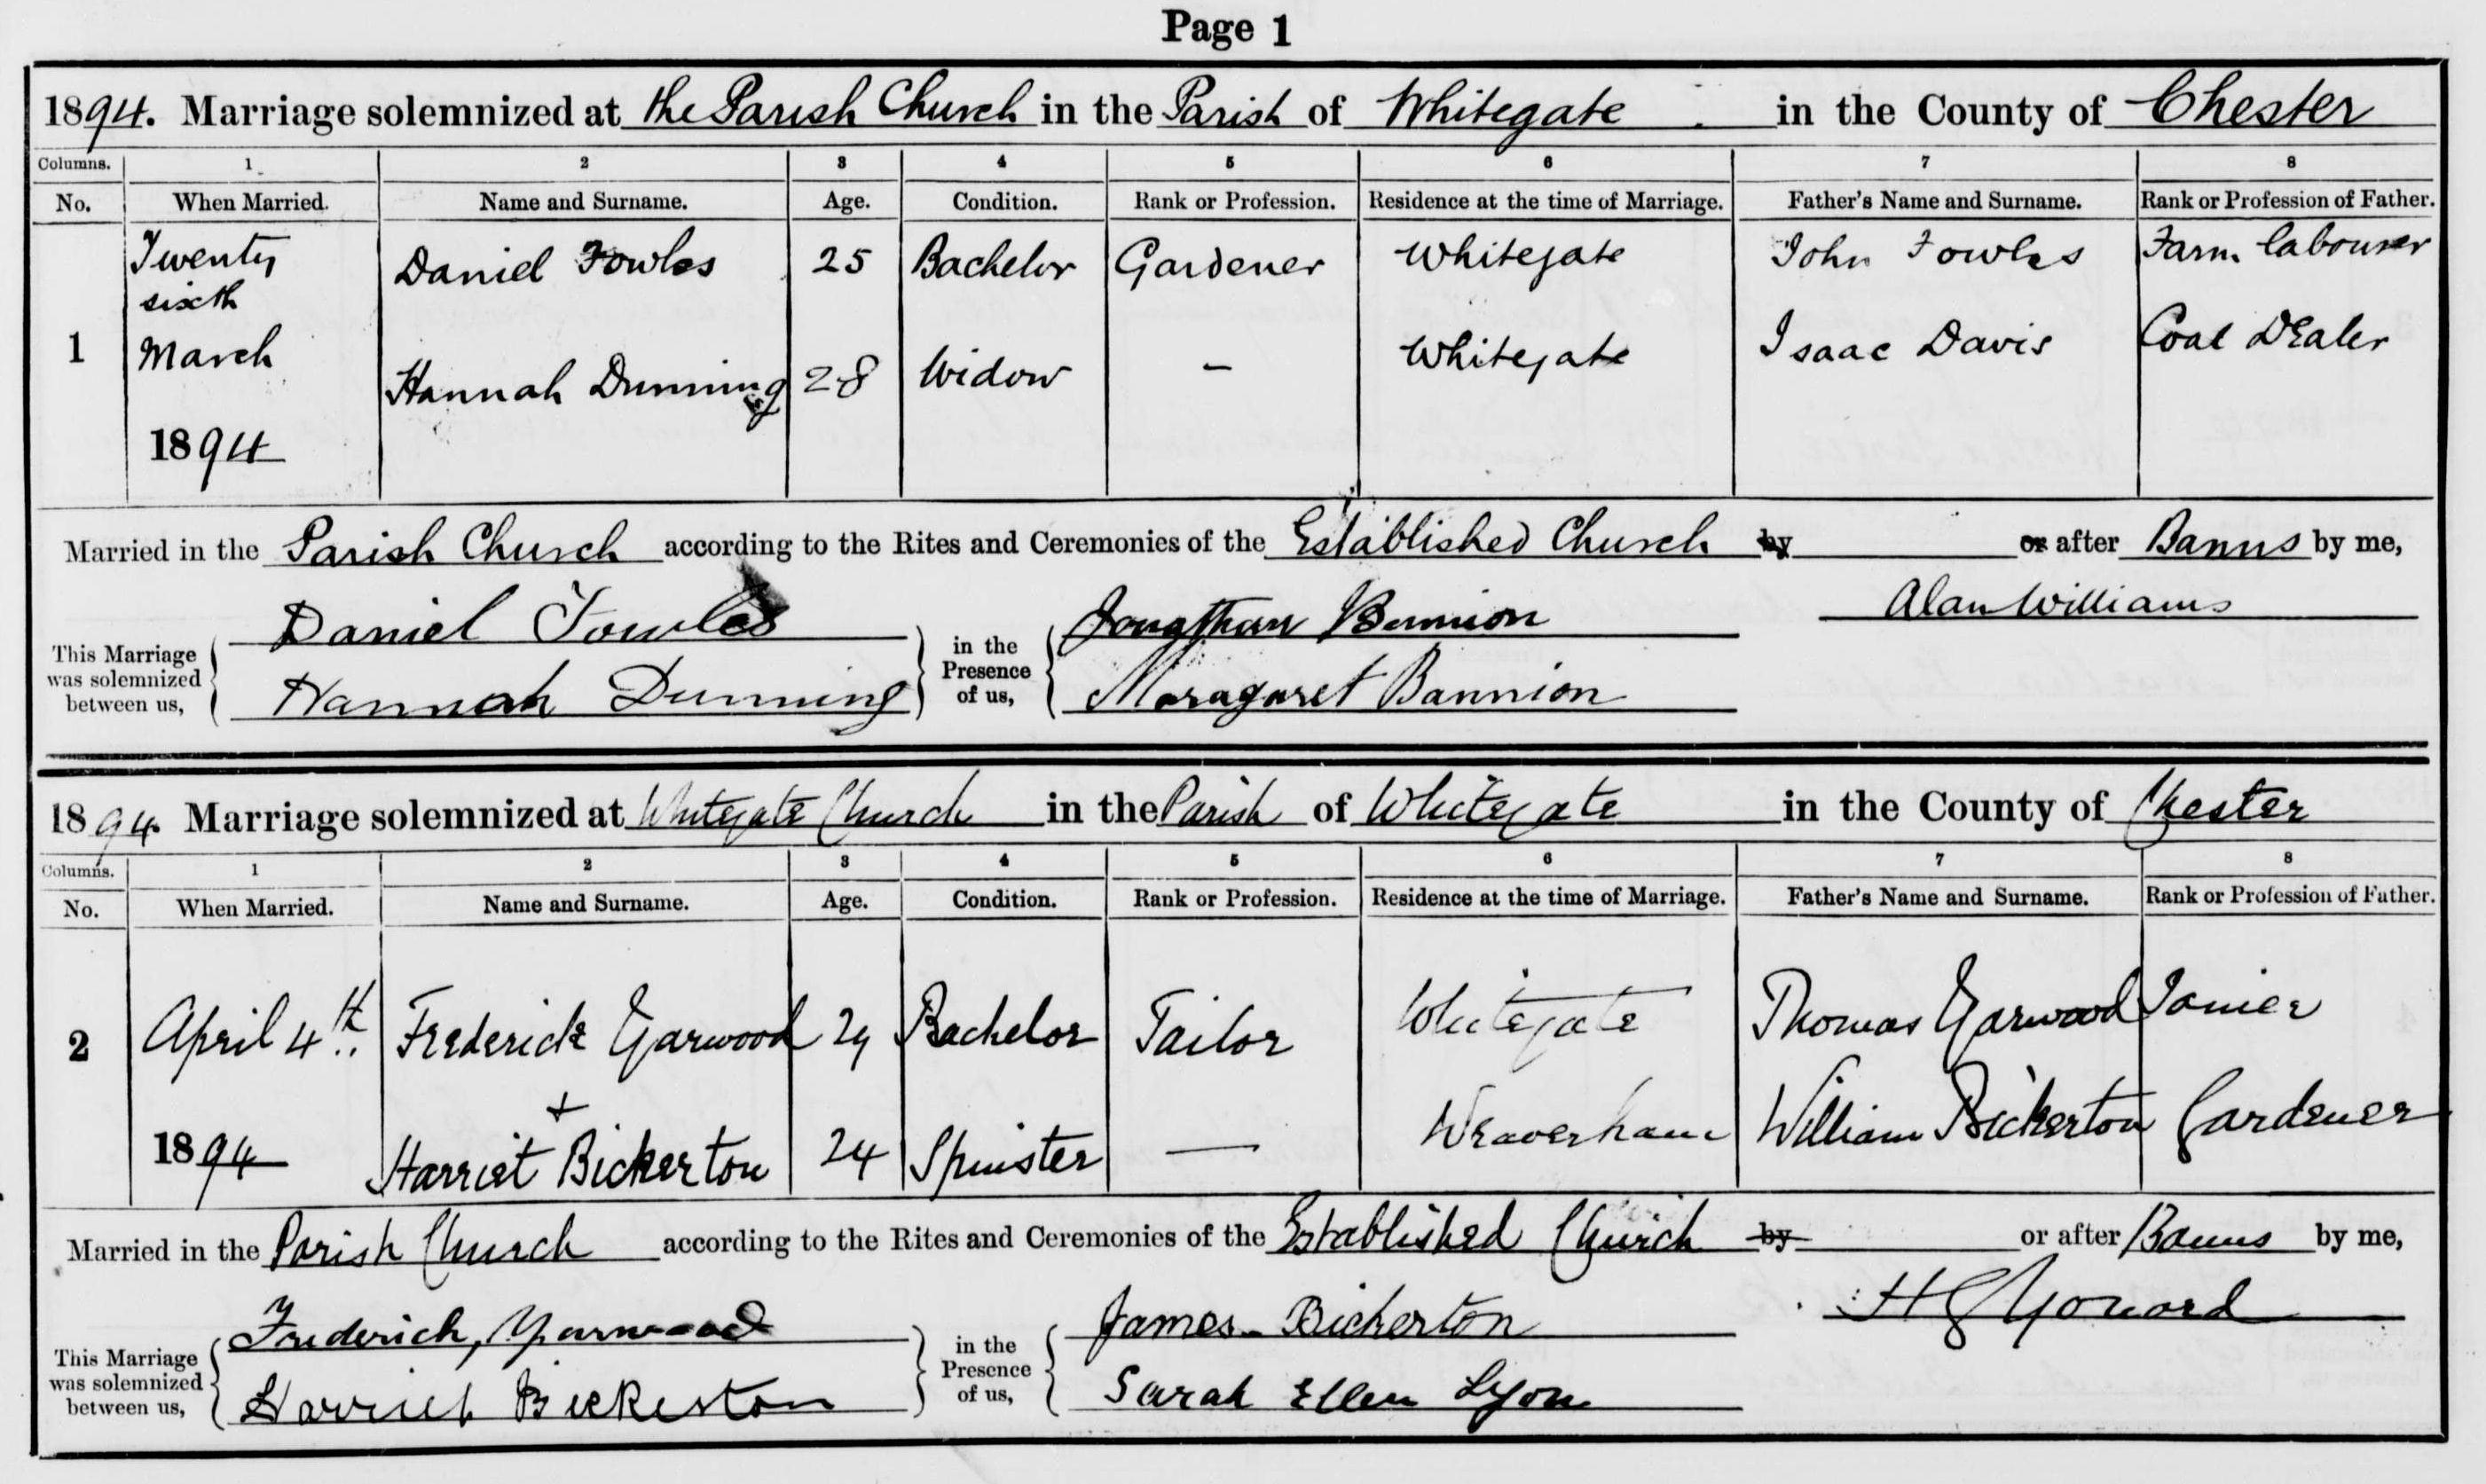 Page 1
1894. Marriage solemnized at the Parish Church in the Parish of Whitegate in the County of Chester
Columns. 1 2 3 4 5 6 7 8
No. When Married. Name and Surname. Age. Condition. Rank or Profession. Residence at the time of Marriage. Father's Name and Surname. Rank or Profession of Father.
1 Twenty sixth March 1894 Daniel Fowles 25 Bachelor Gardener Whitegate John Fowles Farm labourer
Hannah Dunning 28 Widow - Whitegate Isaac Davis Coal Dealer
Married in the Parish Church according to the Rites and Ceremonies of the Established Church by or after Banns by me,
Alan Williams
This Marriage was solemnized between us, Daniel Fowles in the Presence of us, Jonathan Bannion
Hannah Dunning Maragaret Bannion
1894 Marriage solemnized at Whitegate Church in the Parish of Whitegate in the County of Chester
Columns. 1 2 3 4 5 6 7 8
No. When Married. Name and Surname. Age. Condition. Rank or Profession. Residence at the time of Marriage. Father's Name and Surname. Rank or Profession of Father.
2 April 4th 1894 Frederick Yarwood 29 Bachelor Tailor Whitegate Thomas Yarwood Joiner
+
Harriet Bickerton 24 Spinster — Weaverham William Bickerton Gardener
Married in the Parish Church according to the Rites and Ceremonies of the Established Church by or after Banns by me,
This Marriage was solemnized between us, Frederick, Yarwood in the Presence of us, James Bickerton
Harriet Bickerton Sarah Ellen Lyon